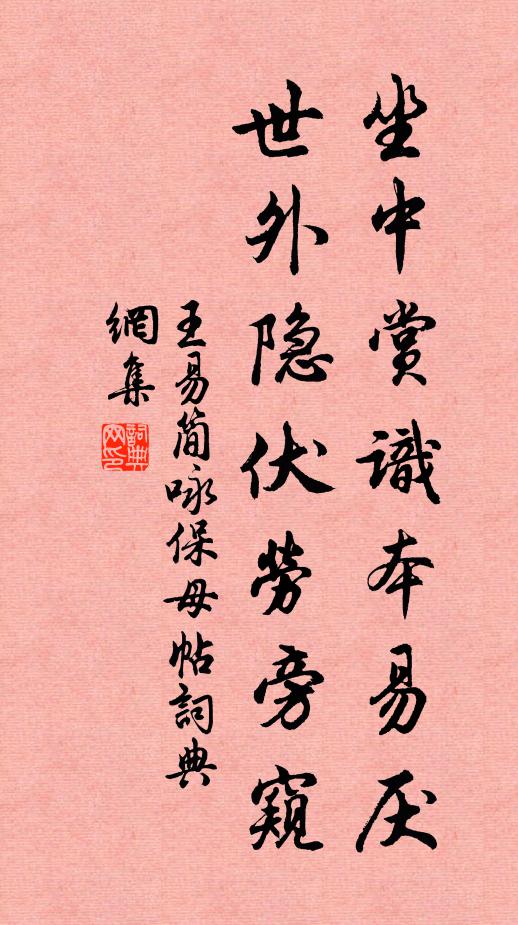 坐中赏識本易厌
世外隐伏勞旁窺
王易简咏保母帖詞典
網集
詞典
网印